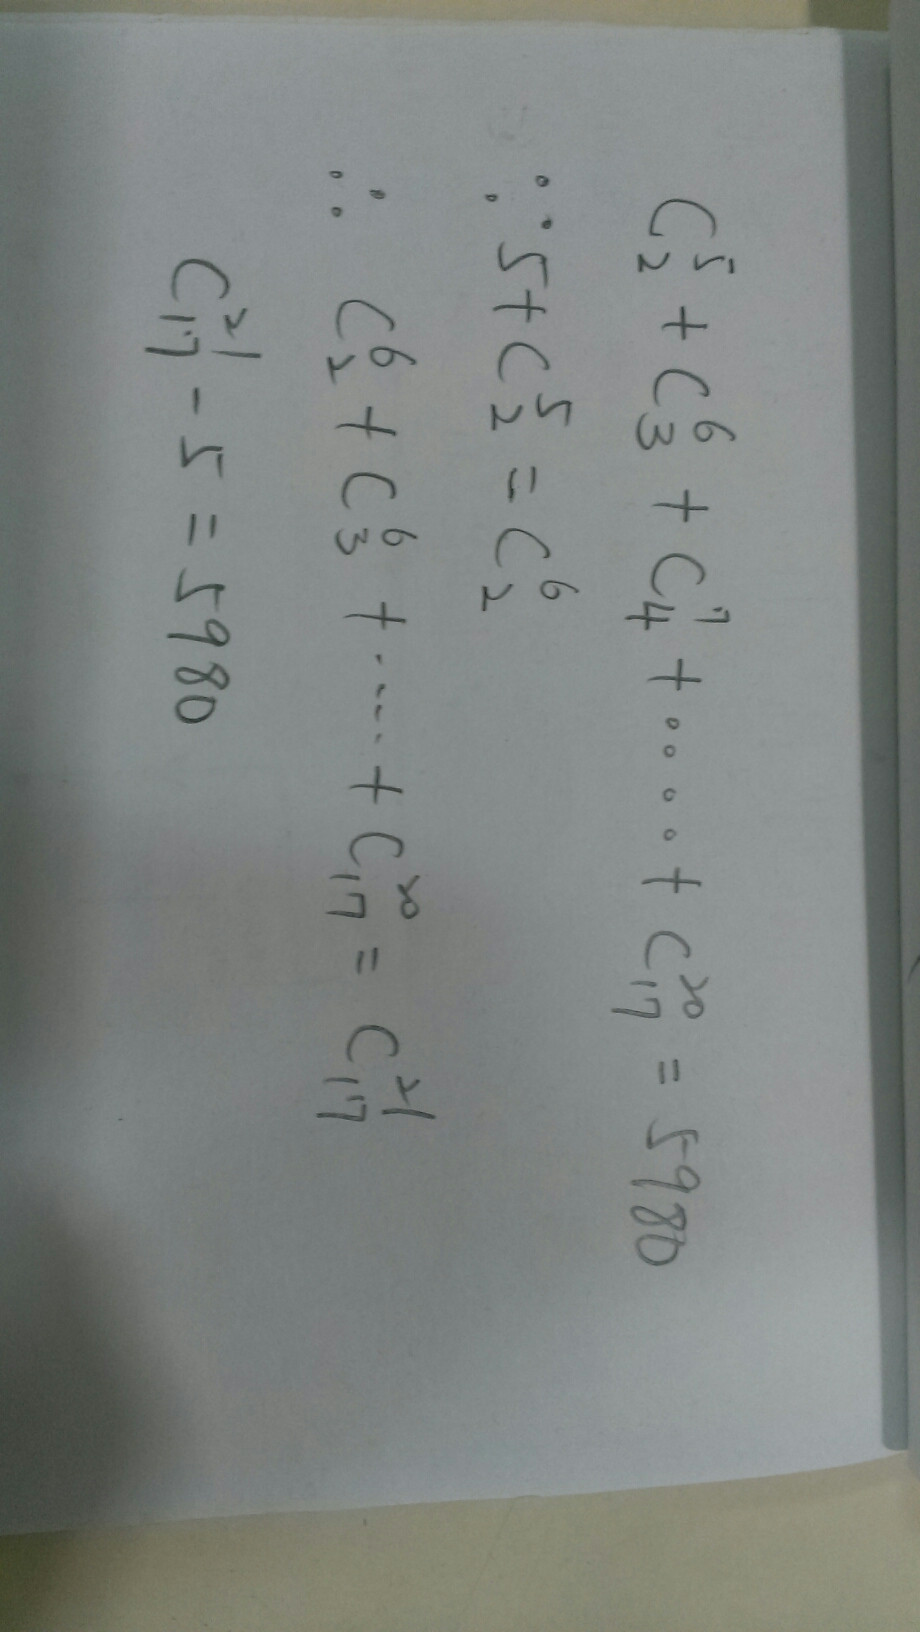 C₂⁵ + C₃⁶ + C₄⁷ + ..... + C₁₇²⁰ = 5980
∵ 5 + C₂⁵ = C₂⁶
∴ C₂⁶ + C₃⁶ + ..... + C₁₇²⁰ = C₁₇²¹
C₁₇²¹ - 5 = 5980